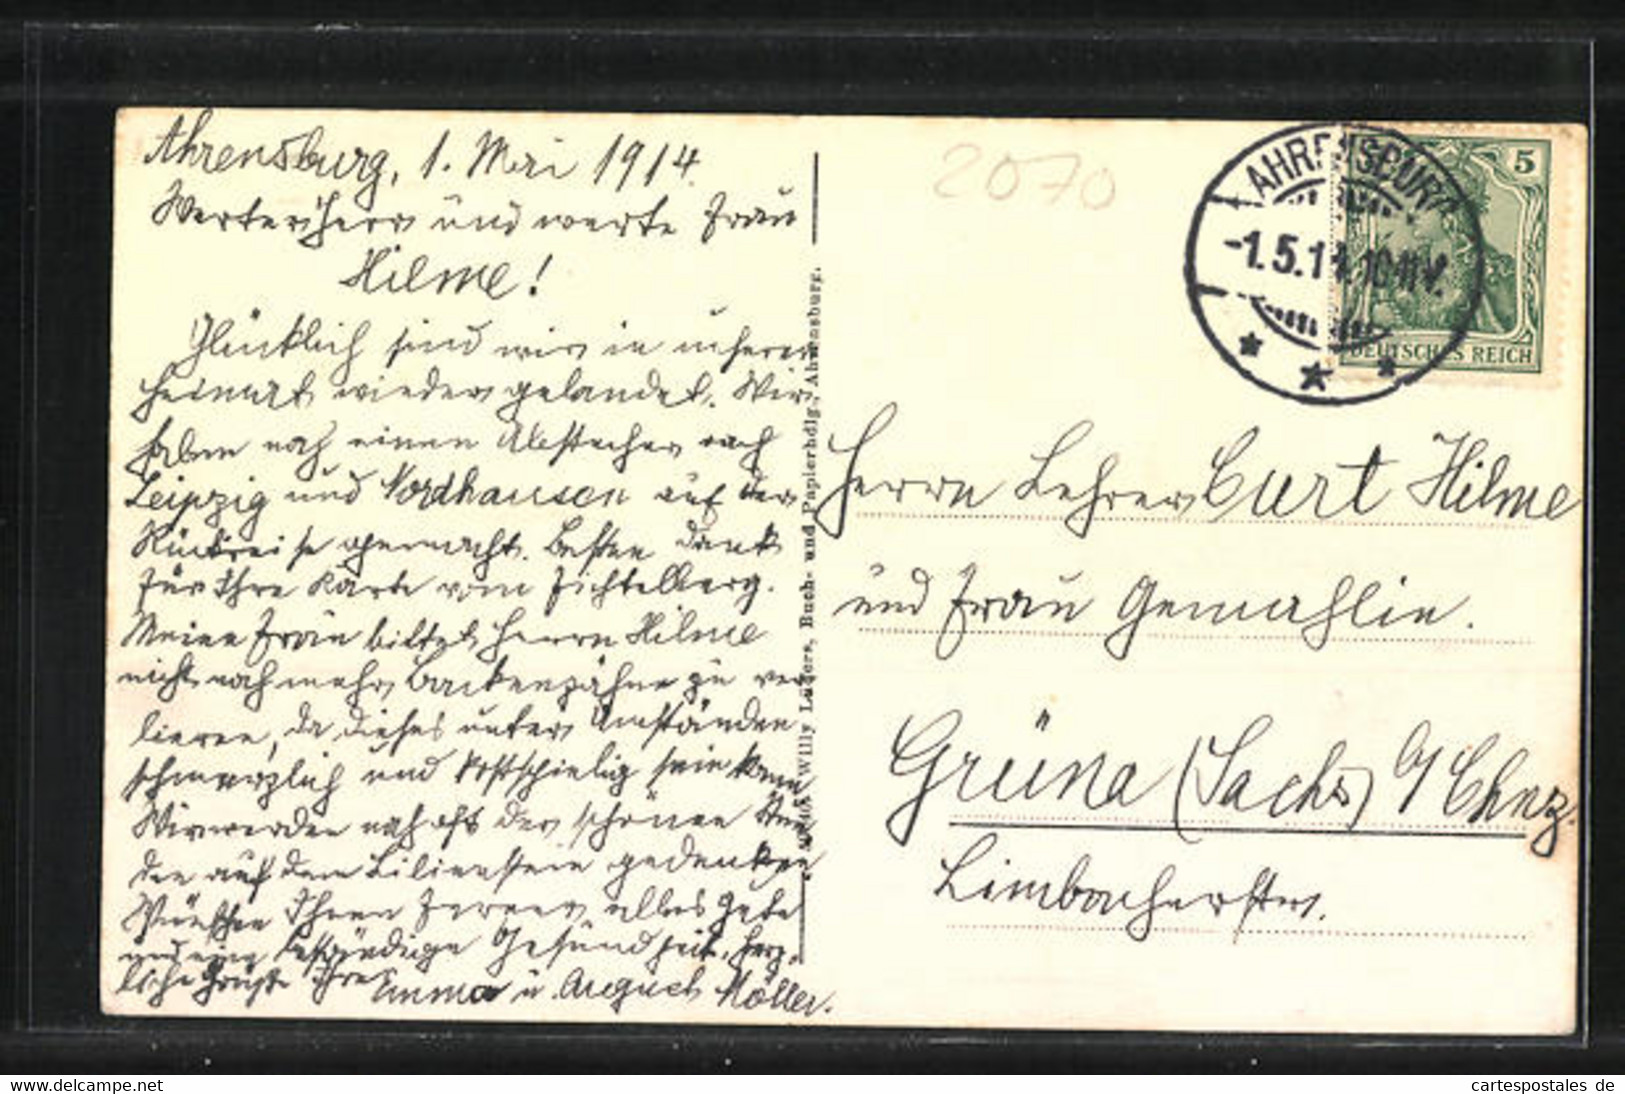 Ahrensburg, 1. Mai 1914.
Werter Herr und werte Frau
Hilme!
Glücklich sind wir in unserer
Heimat wieder gelandet. Wir
haben noch einen Abstecher nach
Leipzig und Nordhausen auf der
Rückreise gemacht. Besten Dank
für Ihre Karte vom Fichtelberg.
Meine Frau bittet Herrn Hilme
nicht noch mehr Backenzähne zu ver
lieren, da dieses unter Umständen
schmerzlich und kostspielig sein kann
Wir werden noch oft der schönen Stun
den auf dem Lilienstein gedenken
Wünschen Ihnen Ferner alles Gute
und eine beständige Gesundheit. Herz-
liche Grüße Ihre Emma u. August Möller.
Willy Lüders, Buch- und Papierhdlg., Ahrensburg.
2070
AHRENSBURG
-1.5.14.10-11V.
5
DEUTSCHES REICH
Herrn Lehrer Curt Hilme
und Frau Gemahlin.
Grüna (Sachs) b/ Chnz.
Limbacherstr.
cartespostales de
www.delcampe.net